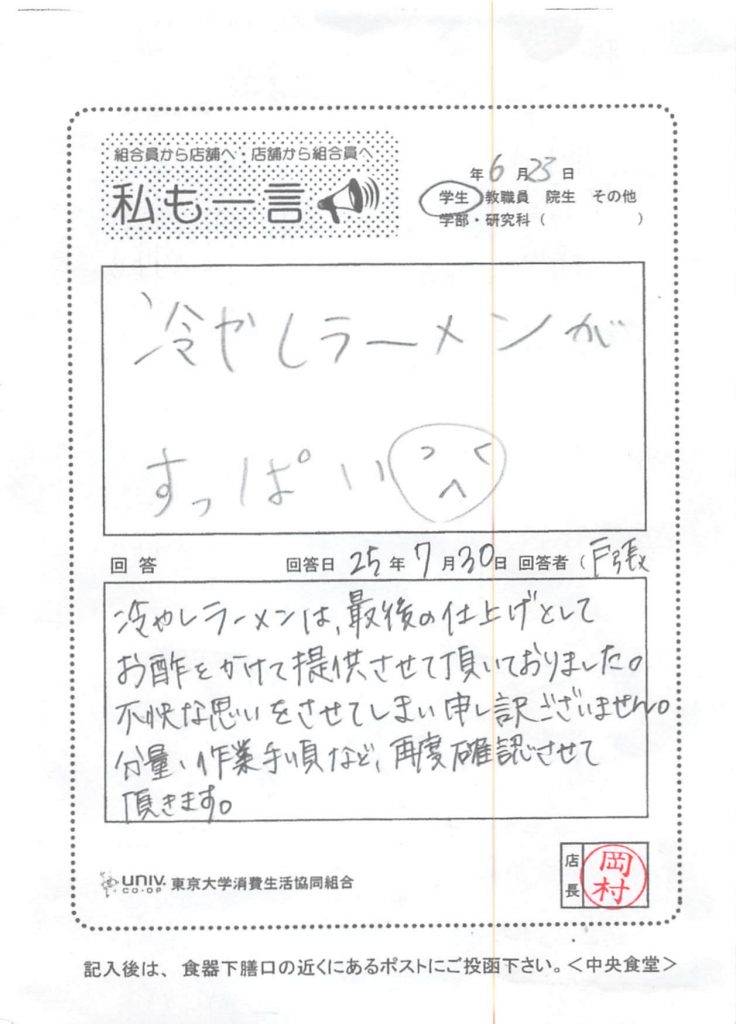 組合員から店舗へ・店舗から組合員へ
私も一言
年6月23日
学生 教職員 院生 その他
学部・研究科（ ）
冷やしラーメンが
すっぱい
回答 回答日 25年7月30日 回答者（戸張
冷やしラーメンは、最後の仕上げとして
お酢をかけて提供させて頂いておりました。
不快な思いをさせてしまい申し訳ございません。
分量、作業手順など、再度確認させて
頂きます。
UNIV. CO-OP 東京大学消費生活協同組合
店長 岡村
記入後は、食器下膳口の近くにあるポストにご投函下さい。＜中央食堂＞